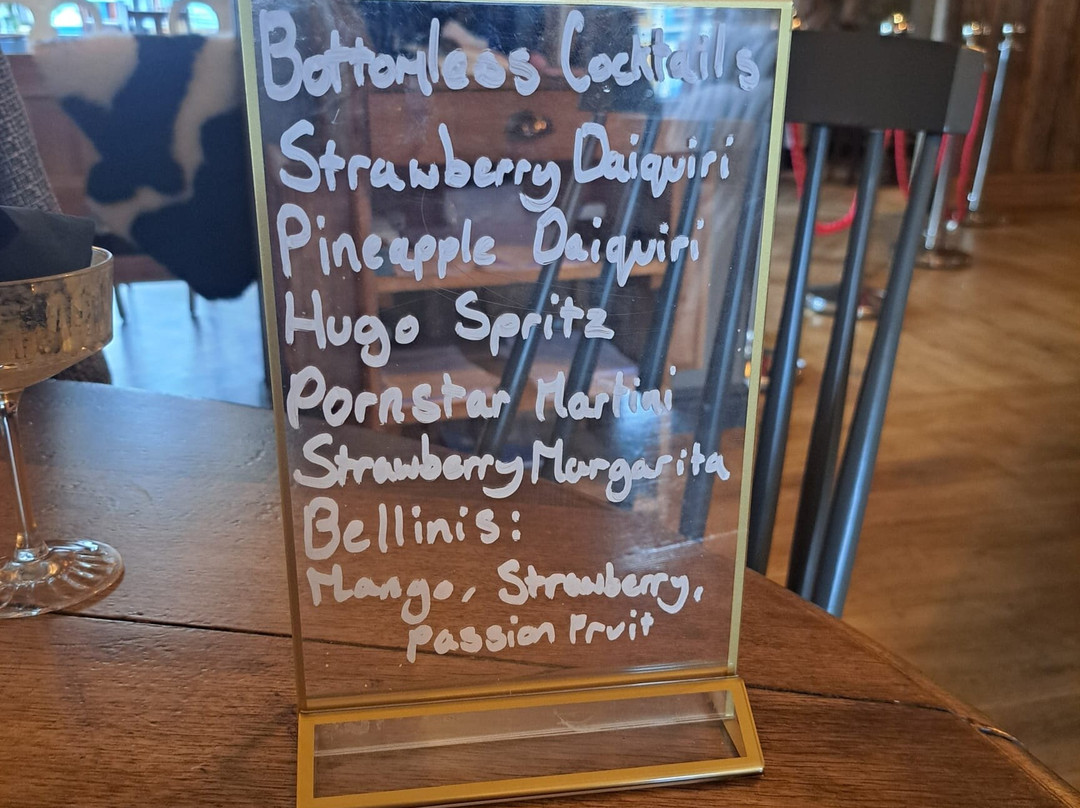 Bottomless Cocktails
Strawberry Daiquiri
Pineapple Daiquiri
Hugo Spritz
Pornstar Martini
Strawberry Margarita
Bellinis:
Mango, Strawberry,
Passion Fruit